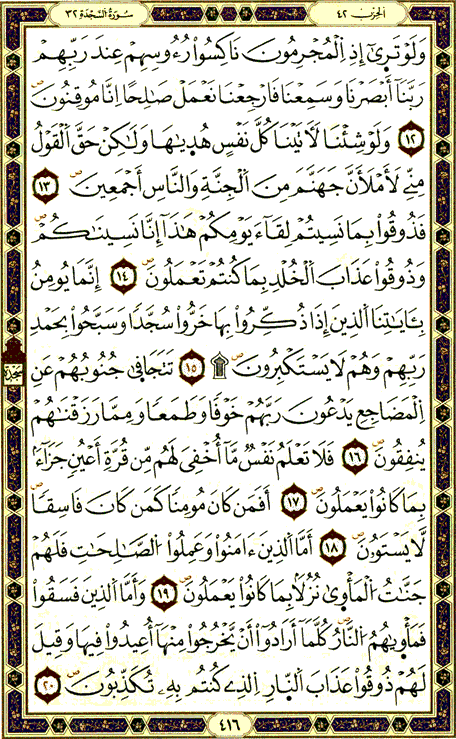 سُورَةُ السَّجْدَةِ ٣٢
الحِزْب ٤٢
وَلَوْ تَر۪ىٰٓ إِذِ اِ۬لْمُجْرِمُونَ نَاكِسُواْ رُءُوسِهِمْ عِندَ رَبِّهِمْ
رَبَّنَآ أَبْصَرْنَا وَسَمِعْنَا فَارْجِعْنَا نَعْمَلْ صَٰلِحاً اِنَّا مُوقِنُونَ
١٢ وَلَوْ شِئْنَا لَأٓتَيْنَا كُلَّ نَفْسٍ هُد۪ىٰهَا وَلَٰكِنْ حَقَّ اَ۬لْقَوْلُ
مِنِّے لَأَمْلَأَنَّ جَهَنَّمَ مِنَ اَ۬لْجِنَّةِ وَالنَّاسِ أَجْمَعِينَ ١٣
فَذُوقُواْ بِمَا نَسِيتُمْ لِقَآءَ يَوْمِكُمْ هَٰذَآ إِنَّا نَسِينَٰكُمْ
وَذُوقُواْ عَذَابَ اَ۬لْخُلْدِ بِمَا كُنتُمْ تَعْمَلُونَ ١٤ إِنَّمَا يُومِنُ
بِـَٔايَٰتِنَا اَ۬لذِينَ إِذَا ذُكِّرُواْ بِهَا خَرُّواْ سُجَّداً وَسَبَّحُواْ بِحَمْدِ
رَبِّهِمْ وَهُمْ لَا يَسْتَكْبِرُونَ ۩ ١٥ تَتَجَاف۪ىٰ جُنُوبُهُمْ عَنِ
سجدة
اِ۬لْمَضَاجِعِ يَدْعُونَ رَبَّهُمْ خَوْفاً وَطَمَعاً وَمِمَّا رَزَقْنَٰهُمْ
يُنفِقُونَ ١٦ فَلَا تَعْلَمُ نَفْسٌ مَّآ أُخْفِيَ لَهُم مِّن قُرَّةِ أَعْيُنٍ جَزَآءَۢ
بِمَا كَانُواْ يَعْمَلُونَ ١٧ أَفَمَن كَانَ مُومِناً كَمَن كَانَ فَاسِقاً
لَّا يَسْتَوُۥنَ ١٨ أَمَّا اَ۬لذِينَ ءَامَنُواْ وَعَمِلُواْ اُ۬لصَّٰلِحَٰتِ فَلَهُمْ
جَنَّٰتُ اُ۬لْمَأْو۪ىٰ نُزُلَاۢ بِمَا كَانُواْ يَعْمَلُونَ ١٩ وَأَمَّا اَ۬لذِينَ فَسَقُواْ
فَمَأْو۪ىٰهُمُ اُ۬لنَّارُ كُلَّمَآ أَرَادُوٓاْ أَنْ يَّخْرُجُواْ مِنْهَآ أُعِيدُواْ فِيهَا وَقِيلَ
لَهُمْ ذُوقُواْ عَذَابَ اَ۬لنّ۪ارِ اِ۬لذِے كُنتُم بِهِۦ تُكَذِّبُونَ ٢٠
٤١٦